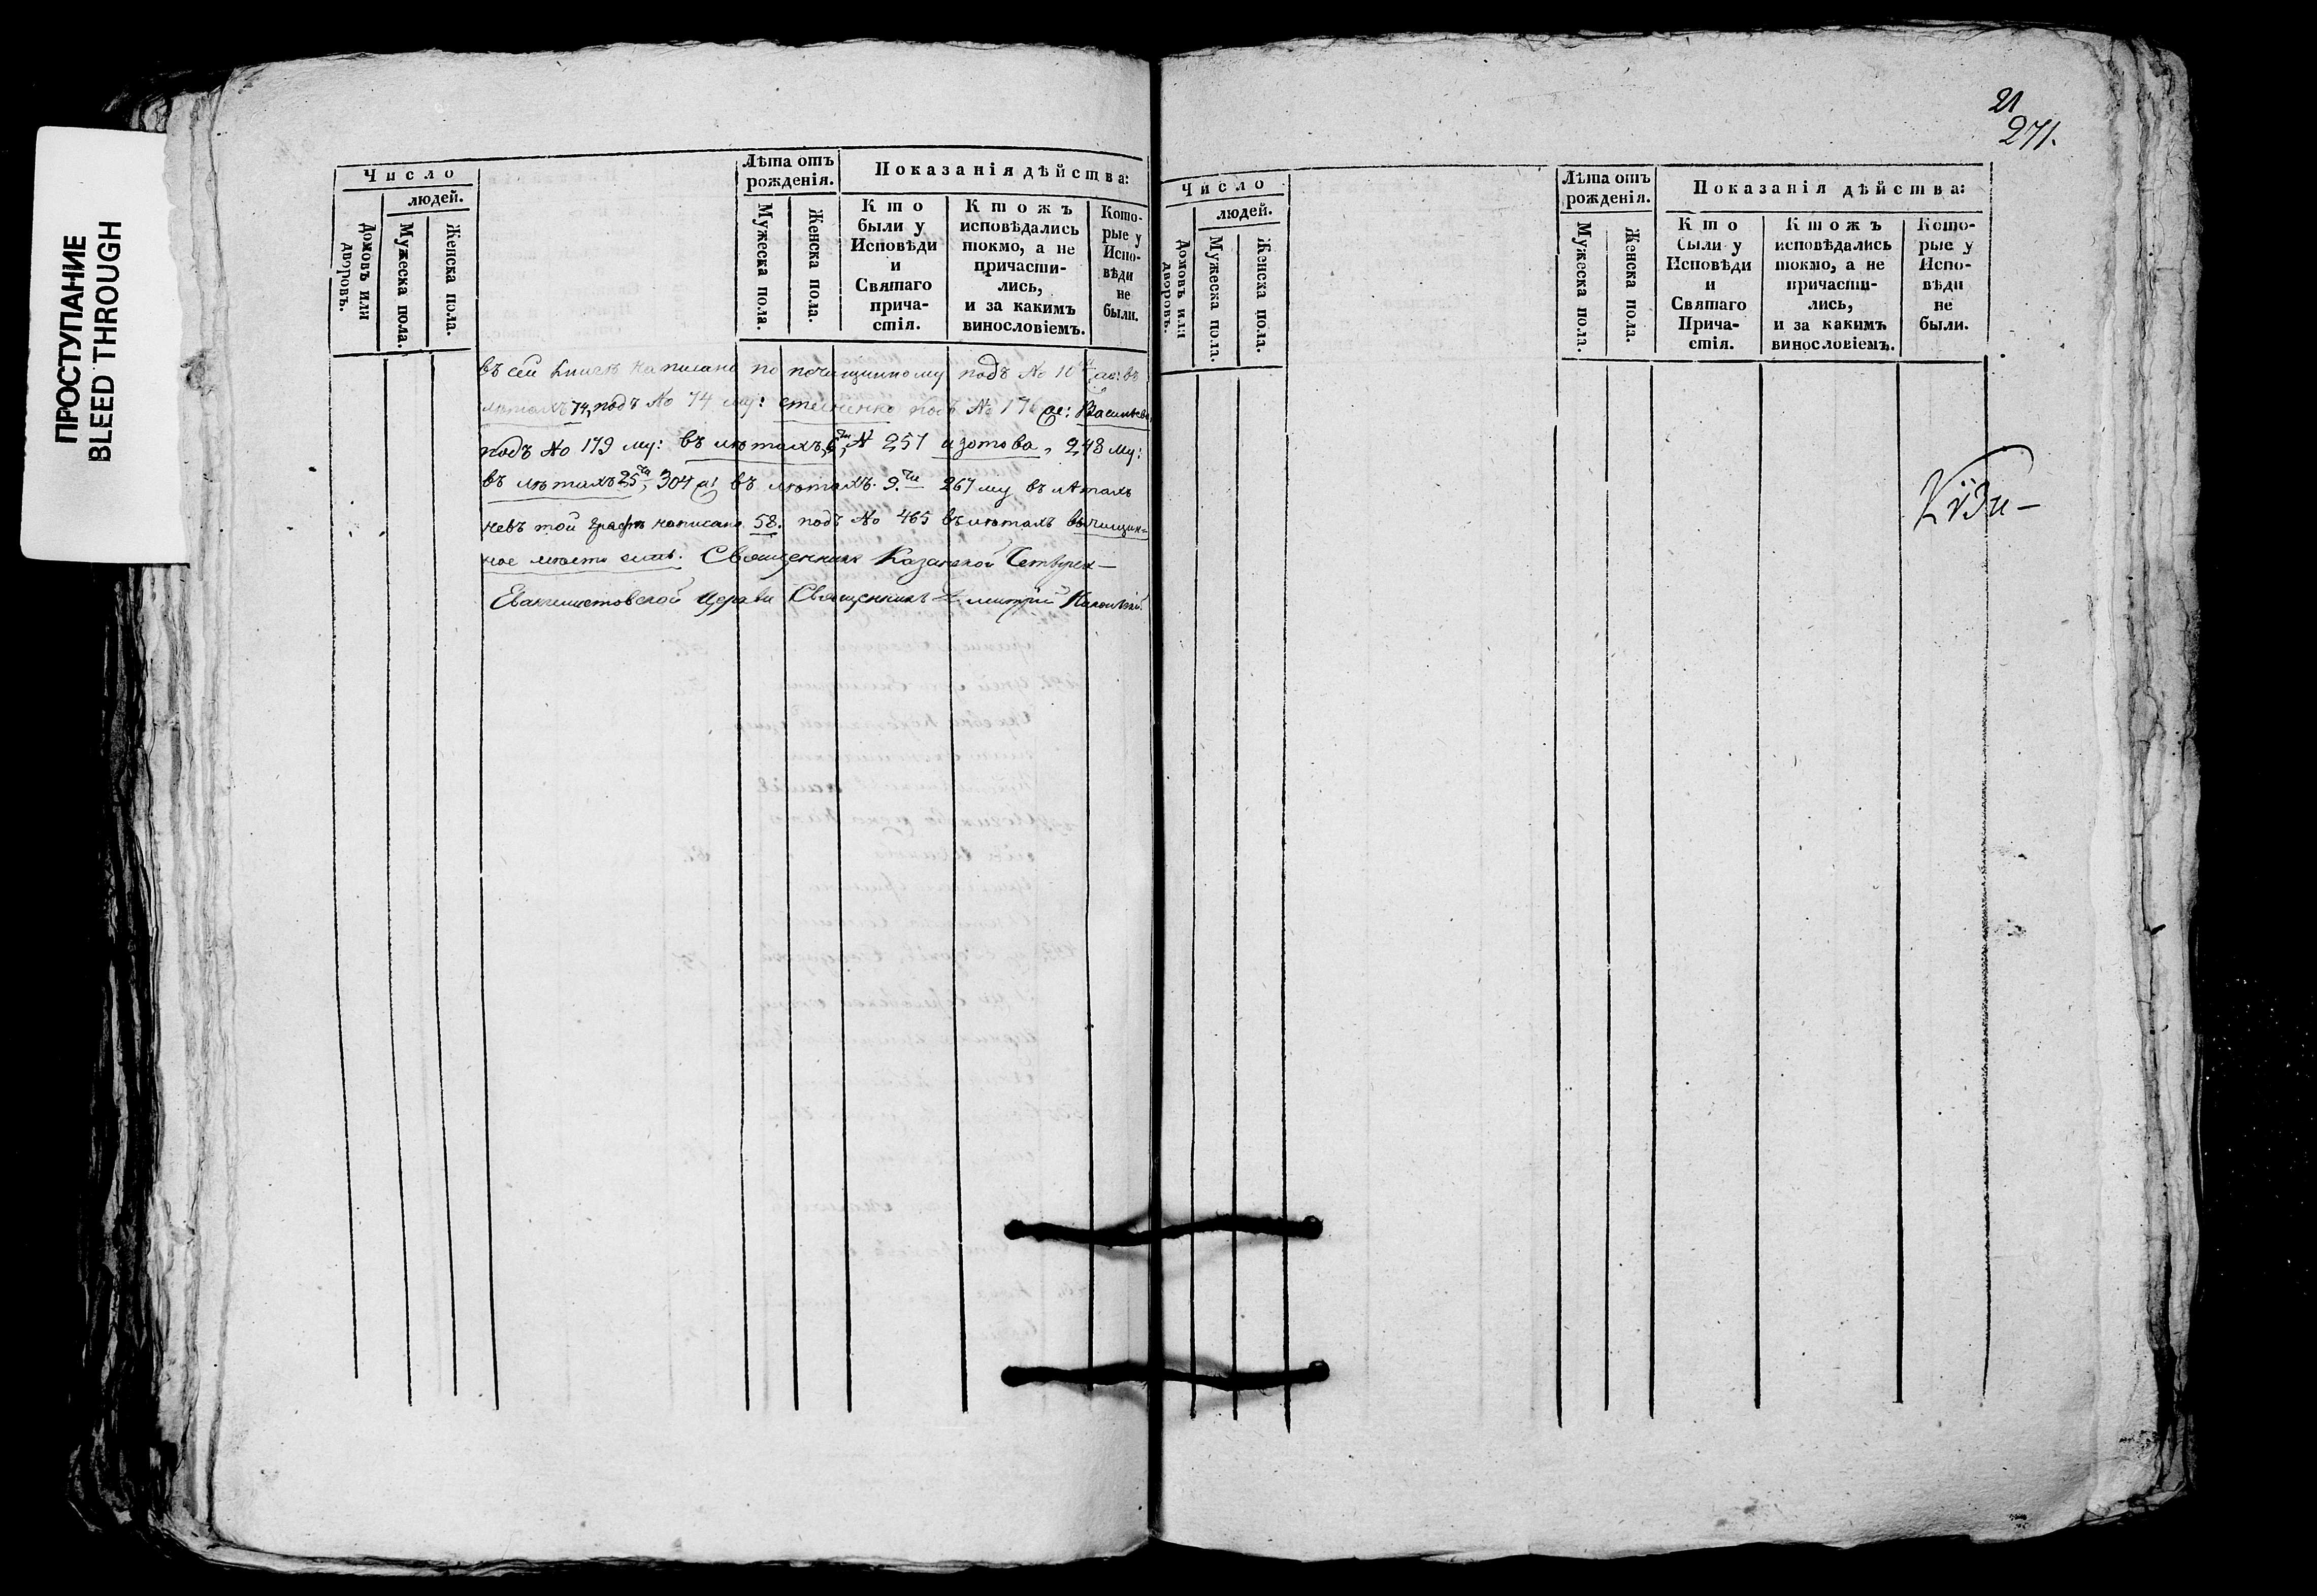 ПРОСТУПАНИЕ
BLEED THROUGH
Число
людей.
Домовъ или дворовъ.
Мужеска пола.
Женска пола.
Лѣта отъ рожденія.
Мужеска пола.
Женска пола.
Показанія дѣйства:
Кто
были у
Исповѣди
и
Святаго
прича-
стія.
Ктожъ
исповѣдались
токмо, а не
причасти-
лись,
и за какимъ
винословіемъ.
Кото-
рые у
Испо-
вѣди
не
были.
въ сей книгѣ написано по почищенному подъ № 10 въ
лѣтахъ 74, подъ № 74 му: подъ № 176 Васильева
подъ № 179 му: въ лѣтахъ № 257 изотова, 248 му:
въ лѣтахъ 25, 304 въ лѣтахъ 9. 267 му въ лѣтахъ
невъ той графѣ написано 58. подъ № 465 въ лѣтахъ вычищен-
ное мѣсто есть. Священникъ Казанской Четырех-
Евангелистовской Церкви Священникъ Димитрій
21
271.
Число
людей.
Домовъ или дворовъ.
Мужеска пола.
Женска пола.
Лѣта отъ рожденія.
Мужеска пола.
Женска пола.
Показанія дѣйства:
Кто
были у
Исповѣди
и
Святаго
Прича-
стія.
Ктожъ
исповѣдались
токмо, а не
причасти-
лись,
и за какимъ
винословіемъ.
Кото-
рые у
Испо-
вѣди
не
были.